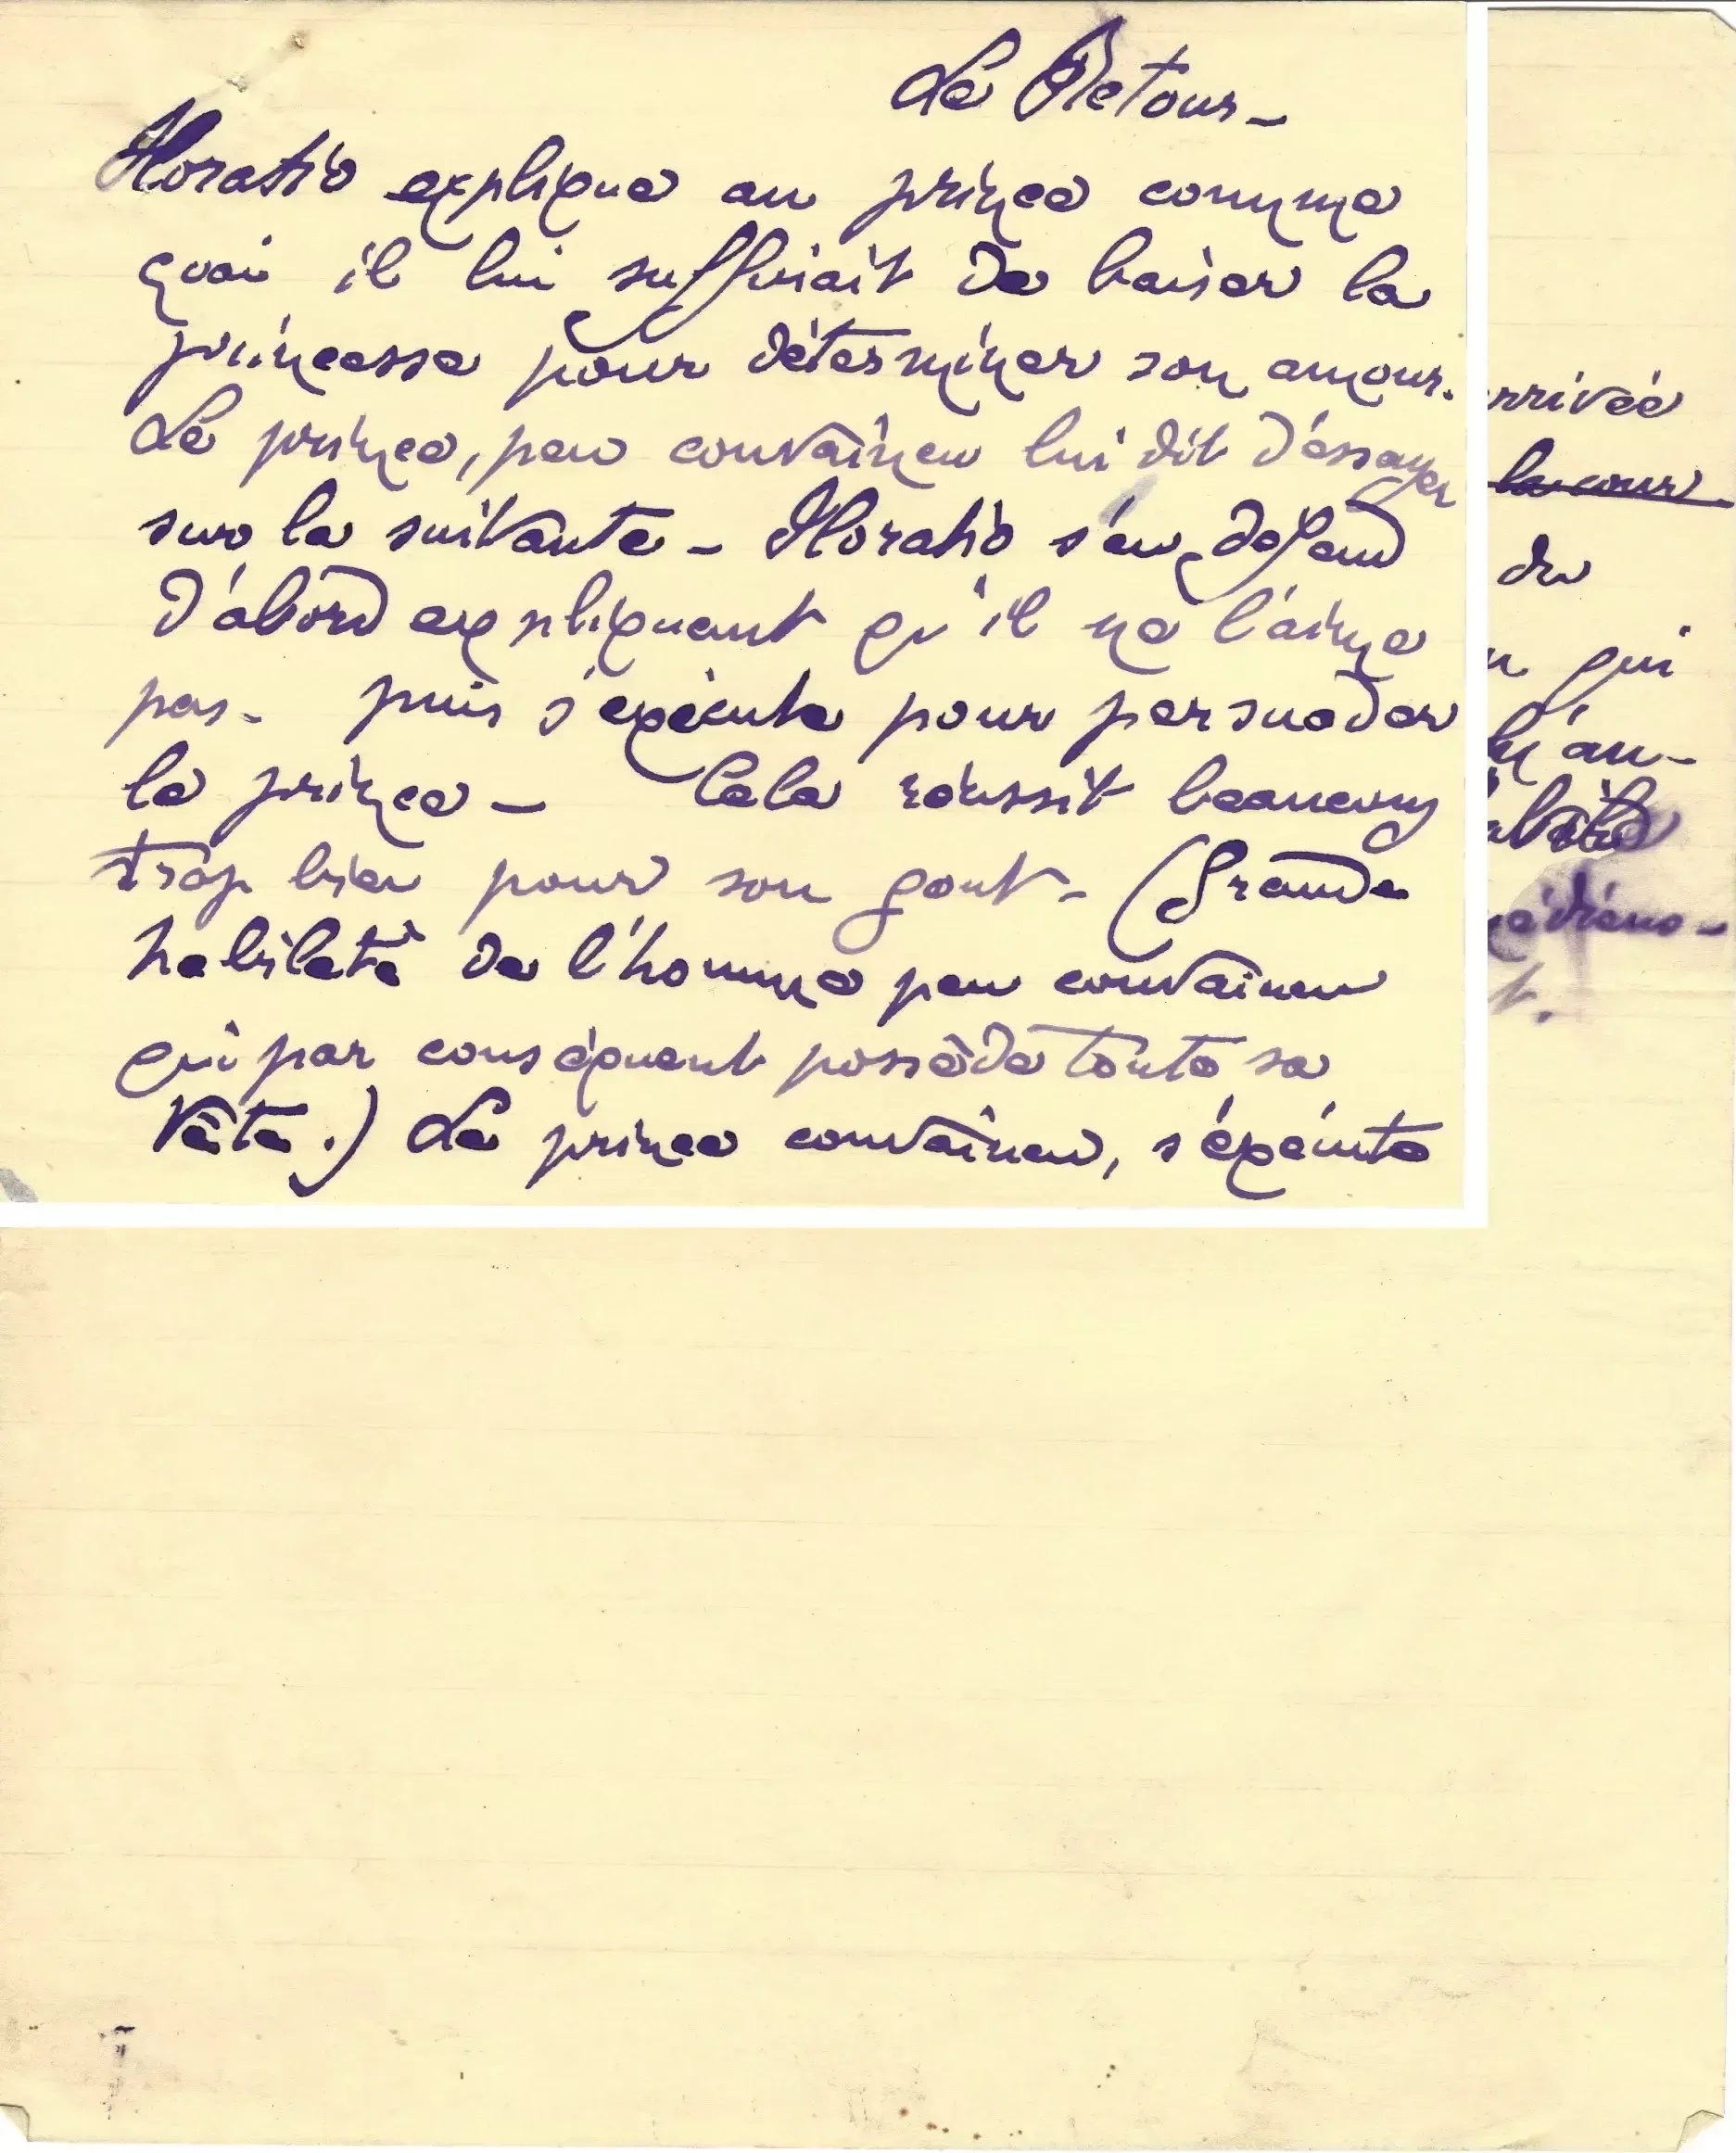 Le Retour -
Horatio explique au prince comme
quoi il lui suffirait de baiser la
princesse pour déterminer son amour.
Le prince, peu convaincu lui dit d'éssayer
sur la suivante - Horatio s'en défend
d'abord expliquant qu'il ne l'aime
pas - puis s'exécute pour persuader
le prince - Cela réussit beaucoup
trop bien pour son gout - (Grande
habileté de l'homme peu convaincu
qui par conséquent possède toute sa
tête.) Le prince convaincu, s'éxécute
rrivée
la cour
du
qui